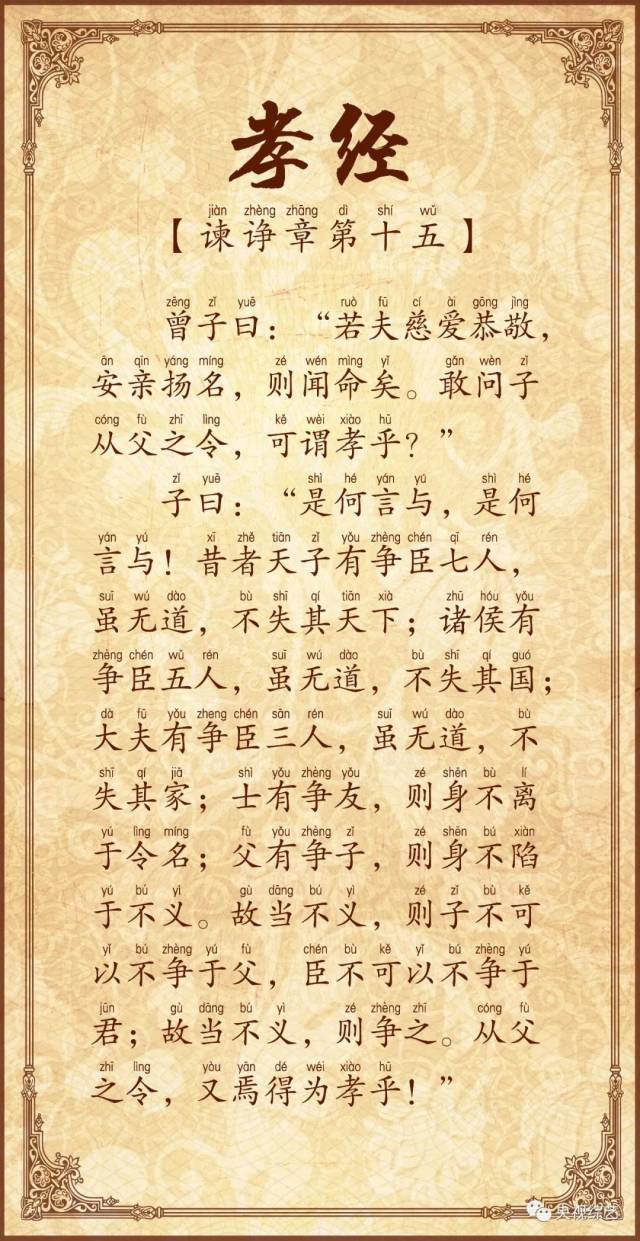 孝经
jiàn zhèng zhāng dì shí wǔ
【谏诤章第十五】
zēng zǐ yuē ruò fū cí ài gōng jìng
曾子曰：“若夫慈爱恭敬，
ān qīn yáng míng zé wén mìng yǐ gǎn wèn zǐ
安亲扬名，则闻命矣。敢问子
cóng fù zhī lìng kě wèi xiào hū
从父之令，可谓孝乎？”
zǐ yuē shì hé yán yú shì hé
子曰：“是何言与，是何
yán yú xī zhě tiān zǐ yǒu zhèng chén qī rén
言与！昔者天子有争臣七人，
suī wú dào bù shī qí tiān xià zhū hóu yǒu
虽无道，不失其天下；诸侯有
zhèng chén wǔ rén suī wú dào bù shī qí guó
争臣五人，虽无道，不失其国；
dà fū yǒu zheng chén sān rén suī wú dào bù
大夫有争臣三人，虽无道，不
shī qí jiā shì yǒu zhèng yǒu zé shēn bù lí
失其家；士有争友，则身不离
yú lìng míng fù yǒu zhèng zǐ zé shēn bú xiàn
于令名；父有争子，则身不陷
yú bú yì gù dāng bú yì zé zǐ bù kě
于不义。故当不义，则子不可
yǐ bú zhèng yú fù chén bù kě yǐ bú zhèng yú
以不争于父，臣不可以不争于
jūn gù dāng bú yì zé zhèng zhī cóng fù
君；故当不义，则争之。从父
zhī lìng yòu yān dé wéi xiào hū
之令，又焉得为孝乎！”
央视综艺